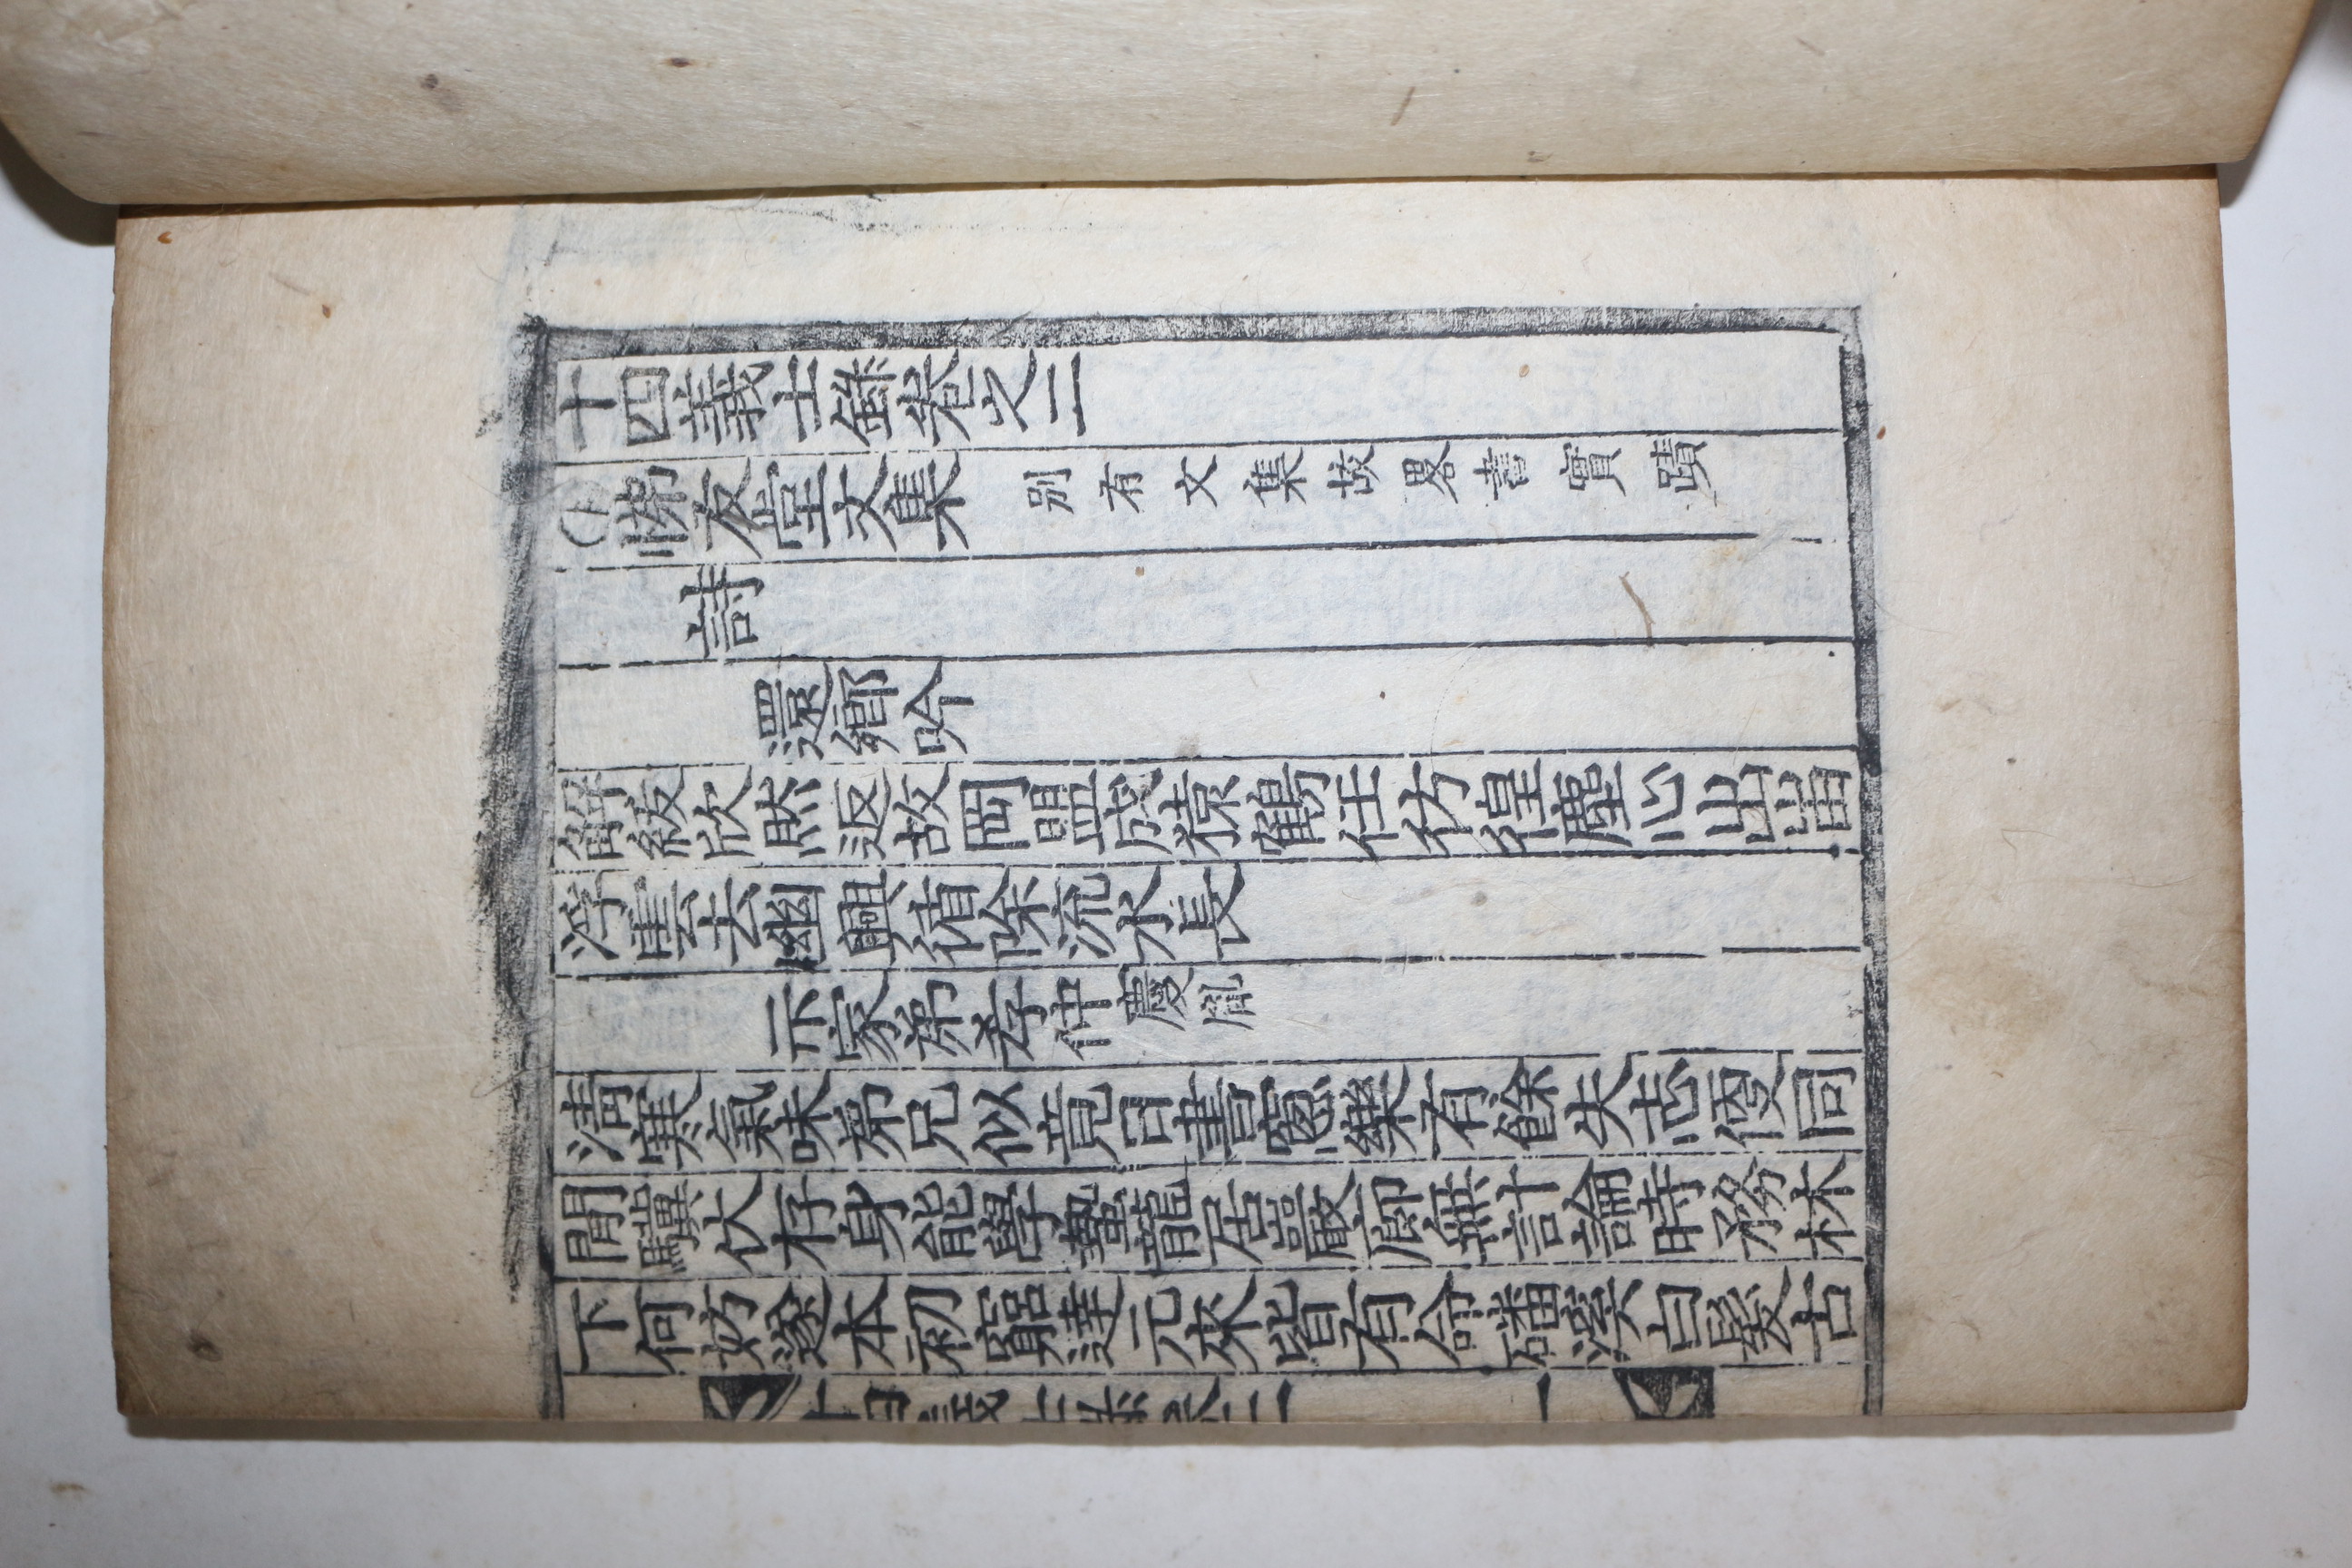 十四義士錄卷之二
悌友堂文集 別有文集故畧書實蹟
詩
還鄉吟
解紱欣然返故岡盟成猿鶴任彷徨塵心出峀
浮雲去幽興循除流水長
示家弟孝仲 慶胤
淸寒氣味弟兄似竟日書窓樂有餘失志便同
閒驥伏存身能學蟄龍居巖廊無計論時務林
下何妨遂本初窮達元來皆有命磻溪白髮古
十四義士錄卷二 一